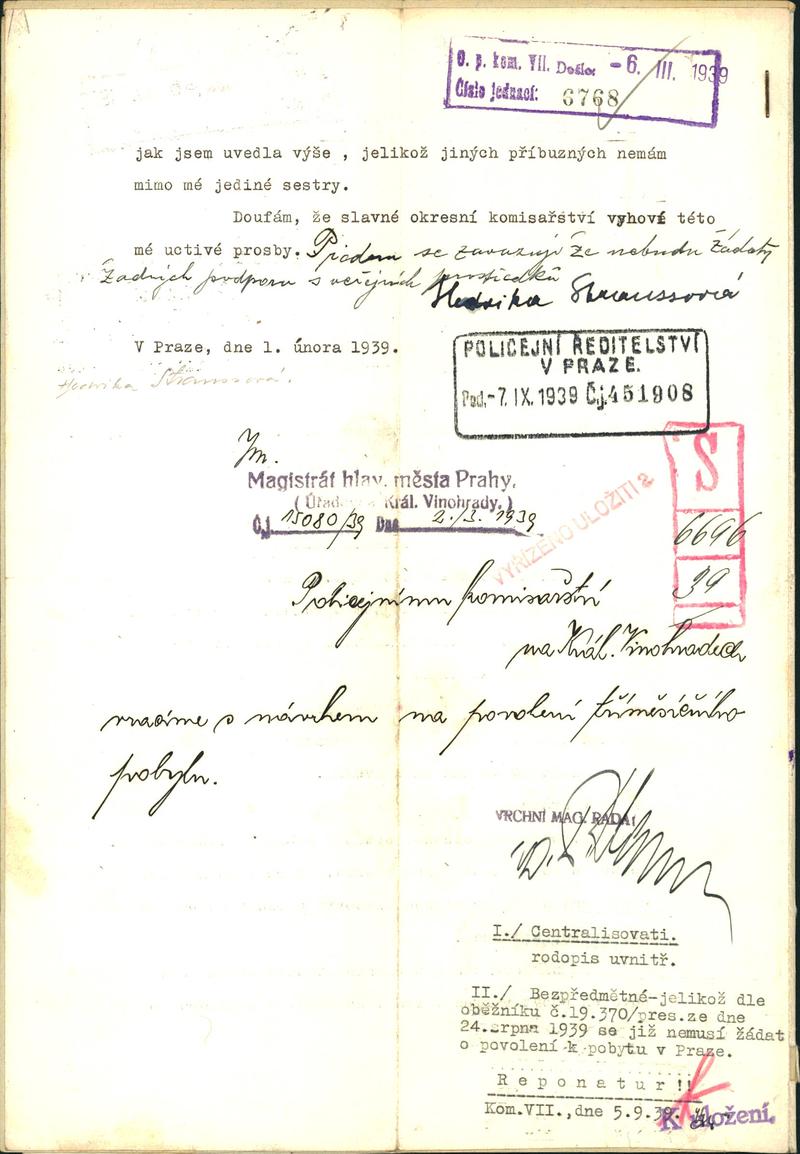 O. p. kom. VII. Došlo: -6. III. 1939
Číslo jednací: 6768
jak jsem uvedla výše , jelikož jiných příbuzných nemám
mimo mé jediné sestry.
Doufám, že slavné okresní komisařství vyhoví této
mé uctivé prosby. Předem se zavazuji že nebudu žádati
žádných podporu s veřejních prostředků
Hedvika Straussová
V Praze, dne 1. února 1939.
Hedvika Straussová.
POLICEJNÍ ŘEDITELSTVÍ
V PRAZE.
Pod.-7. IX. 1939 Č.j. 451908
Magistrát hlav. města Prahy.
( Úřad Král. Vinohrady. )
Č.j. 15080/39 Dne 2./3. 1939
VYŘÍZENO ULOŽITI 2
S
6696
39
Policejnímu komisařství
na Král. Vinohradech
vracíme s návrhem na povolení tříměsíčního
pobytu.
VRCHNÍ MAG. RADA:
I./ Centralisovati.
rodopis uvnitř.
II./ Bezpředmětné-jelikož dle
oběžníku č.19.370/pres.ze dne
24.srpna 1939 se již nemusí žádat
o povolení k pobytu v Praze.
R e p o n a t u r !!
Kom.VII.,dne 5.9.39.
K uložení.